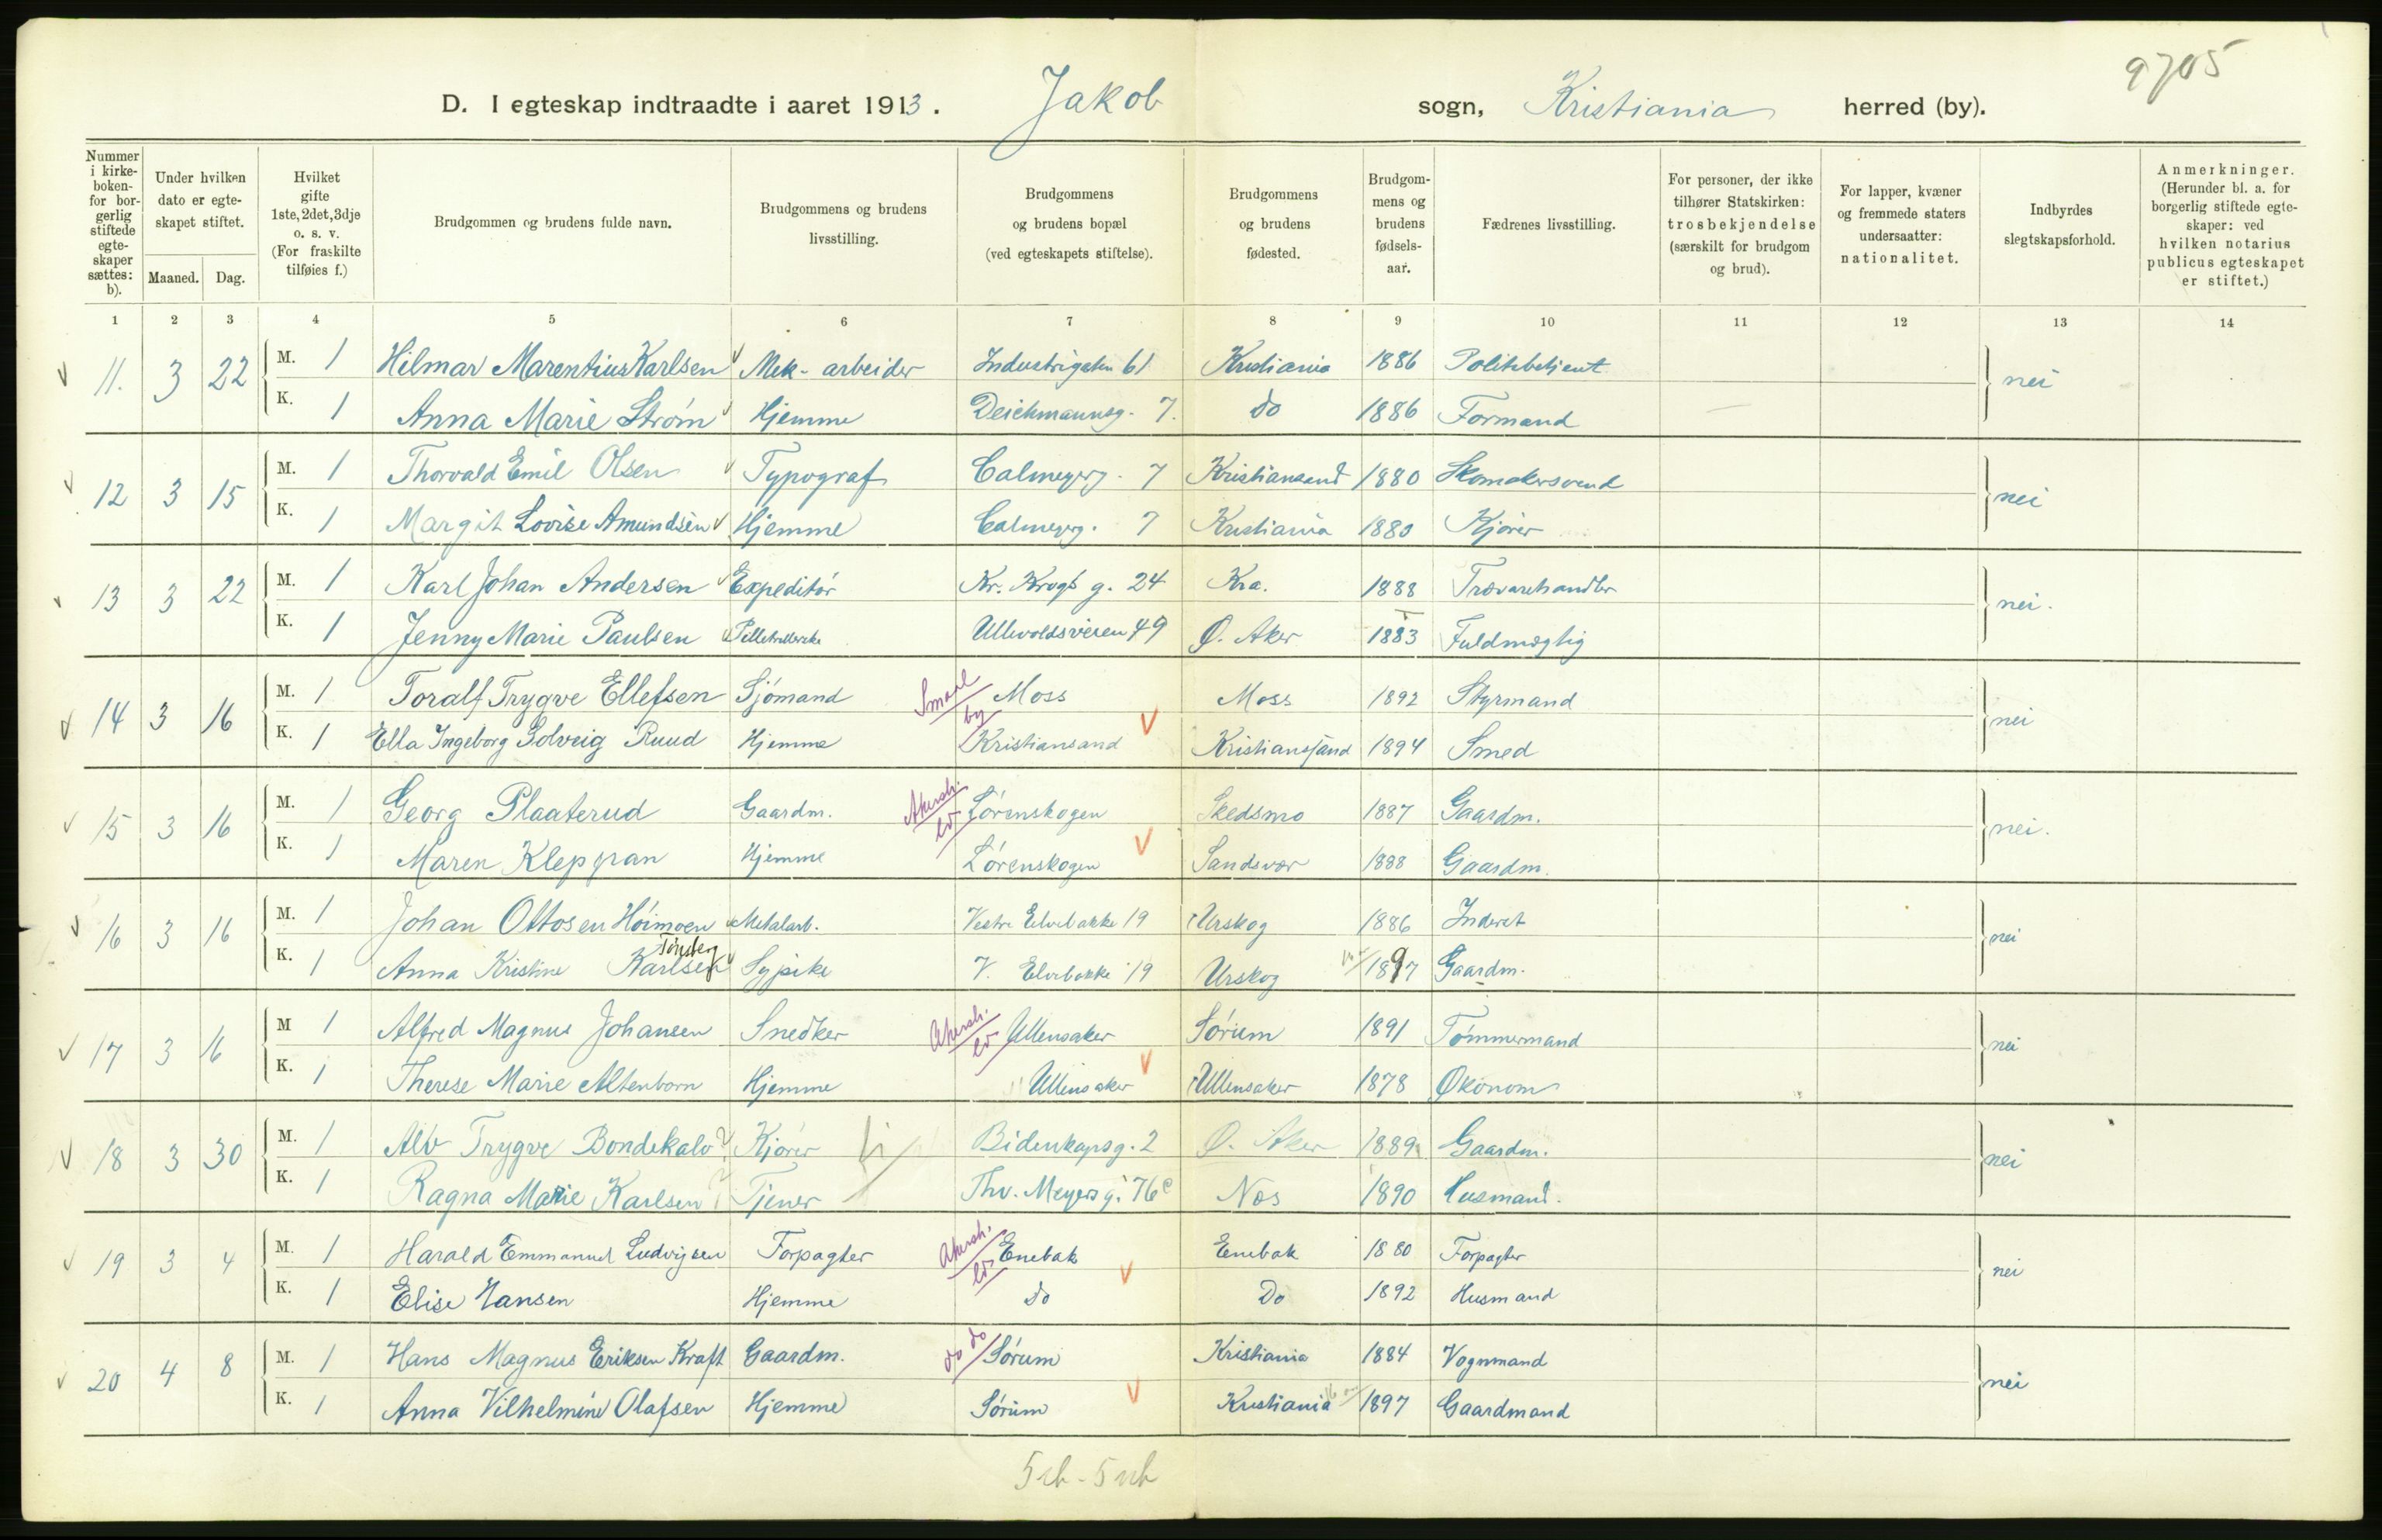 9705
D. I egteskap indtraadte i aaret 1913. Jakob sogn, Kristiania herred (by).
Nummer i kirke-boken- for bor-gerlig stiftede egte-skaper sættes: b). Under hvilken dato er egte-skapet stiftet. Maaned. Dag. Hvilket gifte 1ste, 2det, 3dje o. s. v. (For fraskilte tilføies f.) Brudgommen og brudens fulde navn. Brudgommens og brudens livsstilling. Brudgommens og brudens bopæl (ved egteskapets stiftelse). Brudgommens og brudens fødested. Brudgom-mens og brudens fødsels-aar. Fædrenes livsstilling. For personer, der ikke tilhører Statskirken: trosbekjendelse (særskilt for brudgom og brud). For lapper, kvæner og fremmede staters undersaatter: nationalitet. Indbyrdes slegtskapsforhold. Anmerkninger. (Herunder bl. a. for borgerlig stiftede egte-skaper: ved hvilken notarius publicus egteskapet er stiftet.)
1 2 3 4 5 6 7 8 9 10 11 12 13 14
11. 3 22 M. 1 Hilmar Marentius Karlsen Mek- arbeider Industrigaten 61 Kristiania 1886 Politibetjent nei
K. 1 Anna Marie Strøm Hjemme Deichmannsg. 7. do 1886 Formand
12 3 15 M. 1 Thorvald Emil Olsen Typograf Calmeyerg. 7 Kristiansand 1880 Skomakersvend nei
K. 1 Margit Lovise Amundsen Hjemme Calmeyerg. 7 Kristiania 1880 Kjører
13 3 22 M. 1 Karl Johan Andersen Expeditør Kr. Krogs g. 24 Kra. 1888 Trævarehandler nei.
K. 1 Jenny Marie Paulsen Ullevoldsveien 49 Ø. Aker 1883 Fuldmægtig
14 3 16 M. 1 Toralf Trygve Ellefsen Sjømand Smaal by Moss Moss 1892 Styrmand nei
K. 1 Ella Ingeborg Solveig Ruud Hjemme Kristiansand Kristiansand 1894 Smed
15 3 16 M. 1 Georg Plaaterud Gaardm. Akersh. ld Lørenskogen Skedsmo 1887 Gaardm. nei.
K. 1 Maren Klepgran Hjemme Lørenskogen Sandsvær 1888 Gaardm.
16 3 16 M. 1 Johan Ottosen Høimoen Metalarb. Vestre Elvebakke 19 Urskog 1886 Inderst nei
K. 1 Anna Kristine Karlsen Tønsberg Sypike V. Elvebakke 19 Urskog 1897 Gaardm.
17 3 16 M 1 Alfred Magnus Johansen Snedker Akersh. ld Ullensaker Sørum 1891 Tømmermand nei
K. 1 Therese Marie Altenborn Hjemme Ullensaker Ullensaker 1878 Økonom
18 3 30 M. 1 Alv Trygve Bondekalv? Kjører Bidenkapsg. 2 Ø. Aker 1889 Gaardm. nei
K. 1 Ragna Marie Karlsen ? Tjener Thv. Meyers g. 76c Nes 1890 Husmand.
19 3 4 M. 1 Harald Emmanuel Ludvigsen Forpagter Akersh. ld Enebak Enebak 1880 Forpagter nei
K. 1 Elise Hansen Hjemme do Do 1892 Husmand
20 4 8 M. 1 Hans Magnus Eriksen Kraft Gaardm. do do Sørum Kristiania 1884 Vognmand nei
K. 1 Anna Vilhelmine Olafsen Hjemme Sørum Kristiania 1897 Gaardmand